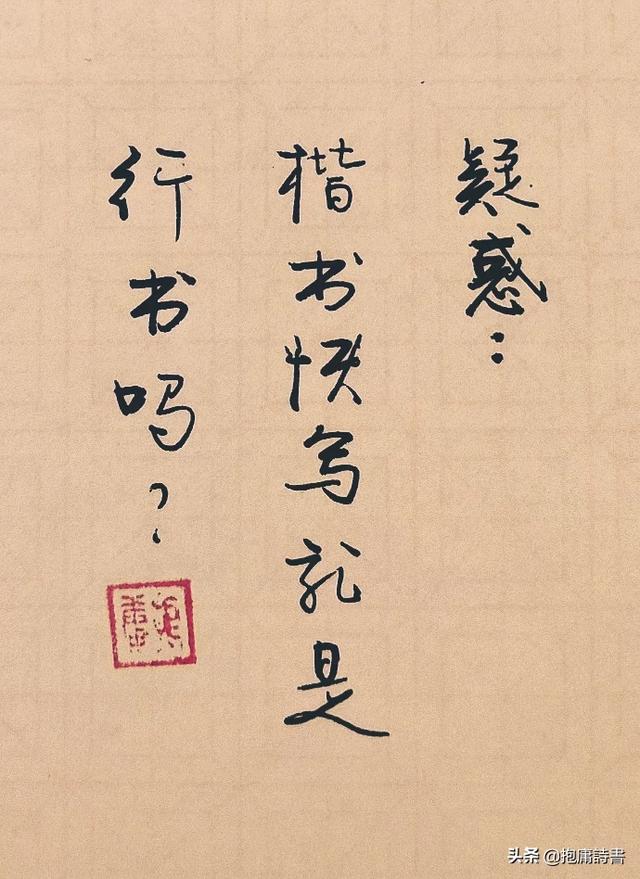 疑惑：
楷书快写就是
行书吗？
头条 @抱庸詩書